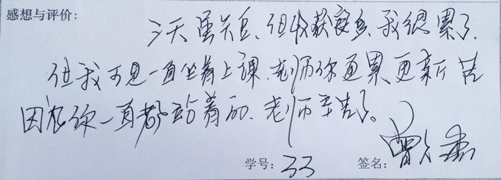 感想与评价:
三天虽短, 但收获颇多, 我很累了,
但我可是一直坐着上课, 老师你更累, 更辛苦
因为你一直都站着的. 老师辛苦了。
学号: 33 签名: